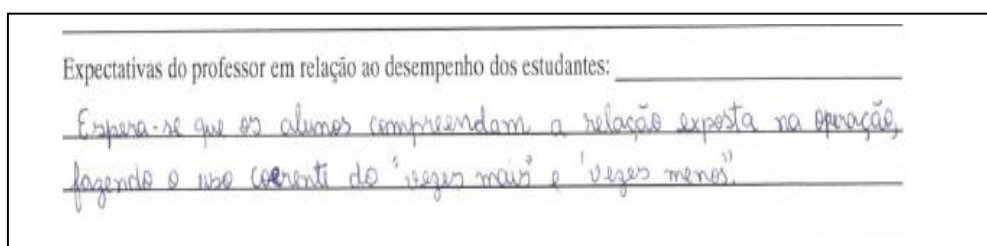 Expectativas do professor em relação ao desempenho dos estudantes:
Espera-se que os alunos compreendam a relação exposta na operação,
fazendo o uso coerente do "vezes mais" e "vezes menos".